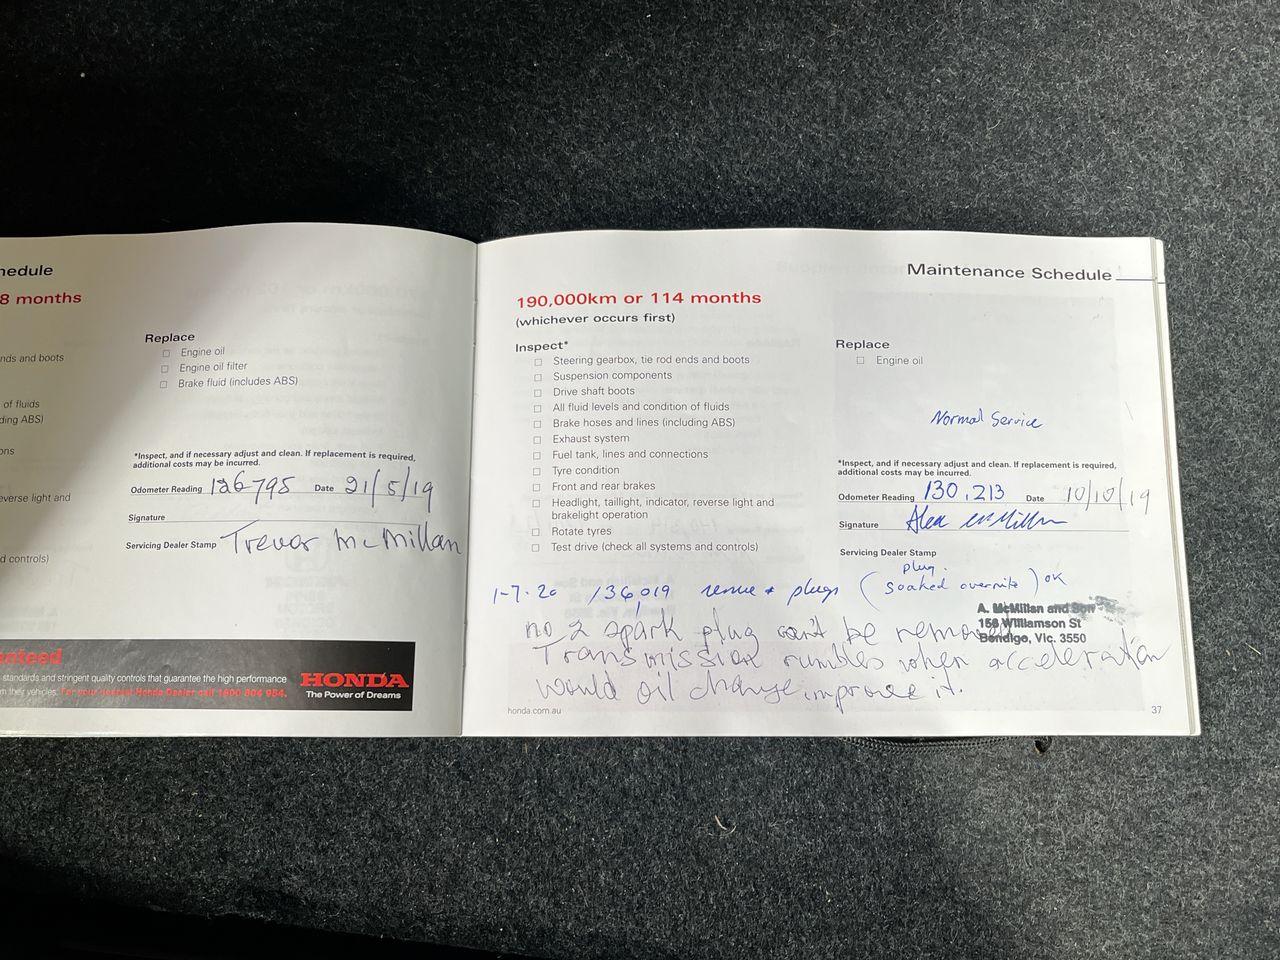 hedule
8 months
nds and boots
of fluids
ding ABS)
ons
everse light and
d controls)
Replace
Engine oil
Engine oil filter
Brake fluid (includes ABS)
*Inspect, and if necessary adjust and clean. If replacement is required,
additional costs may be incurred.
Odometer Reading 126795 Date 21/5/19
Signature
Servicing Dealer Stamp Trevor McMillan
anteed
standards and stringent quality controls that guarantee the high performance
m their vehicles. For your nearest Honda Dealer call 1800 804 954.
HONDA
The Power of Dreams
Maintenance Schedule
190,000km or 114 months
(whichever occurs first)
Inspect*
Steering gearbox, tie rod ends and boots
Suspension components
Drive shaft boots
All fluid levels and condition of fluids
Brake hoses and lines (including ABS)
Exhaust system
Fuel tank, lines and connections
Tyre condition
Front and rear brakes
Headlight, taillight, indicator, reverse light and
brakelight operation
Rotate tyres
Test drive (check all systems and controls)
Replace
Engine oil
Normal Service
*Inspect, and if necessary adjust and clean. If replacement is required,
additional costs may be incurred.
Odometer Reading 130,213 Date 10/10/19
Signature Alex McMillan
Servicing Dealer Stamp
1-7-20 136,019 plugs (plug soaked overnite) OK
A. McMillan and Son
156 Williamson St
Bendigo, Vic. 3550
no 2 spark plug can't be removed
Transmission rumbles when acceleration
would oil change improve it.
honda.com.au
37